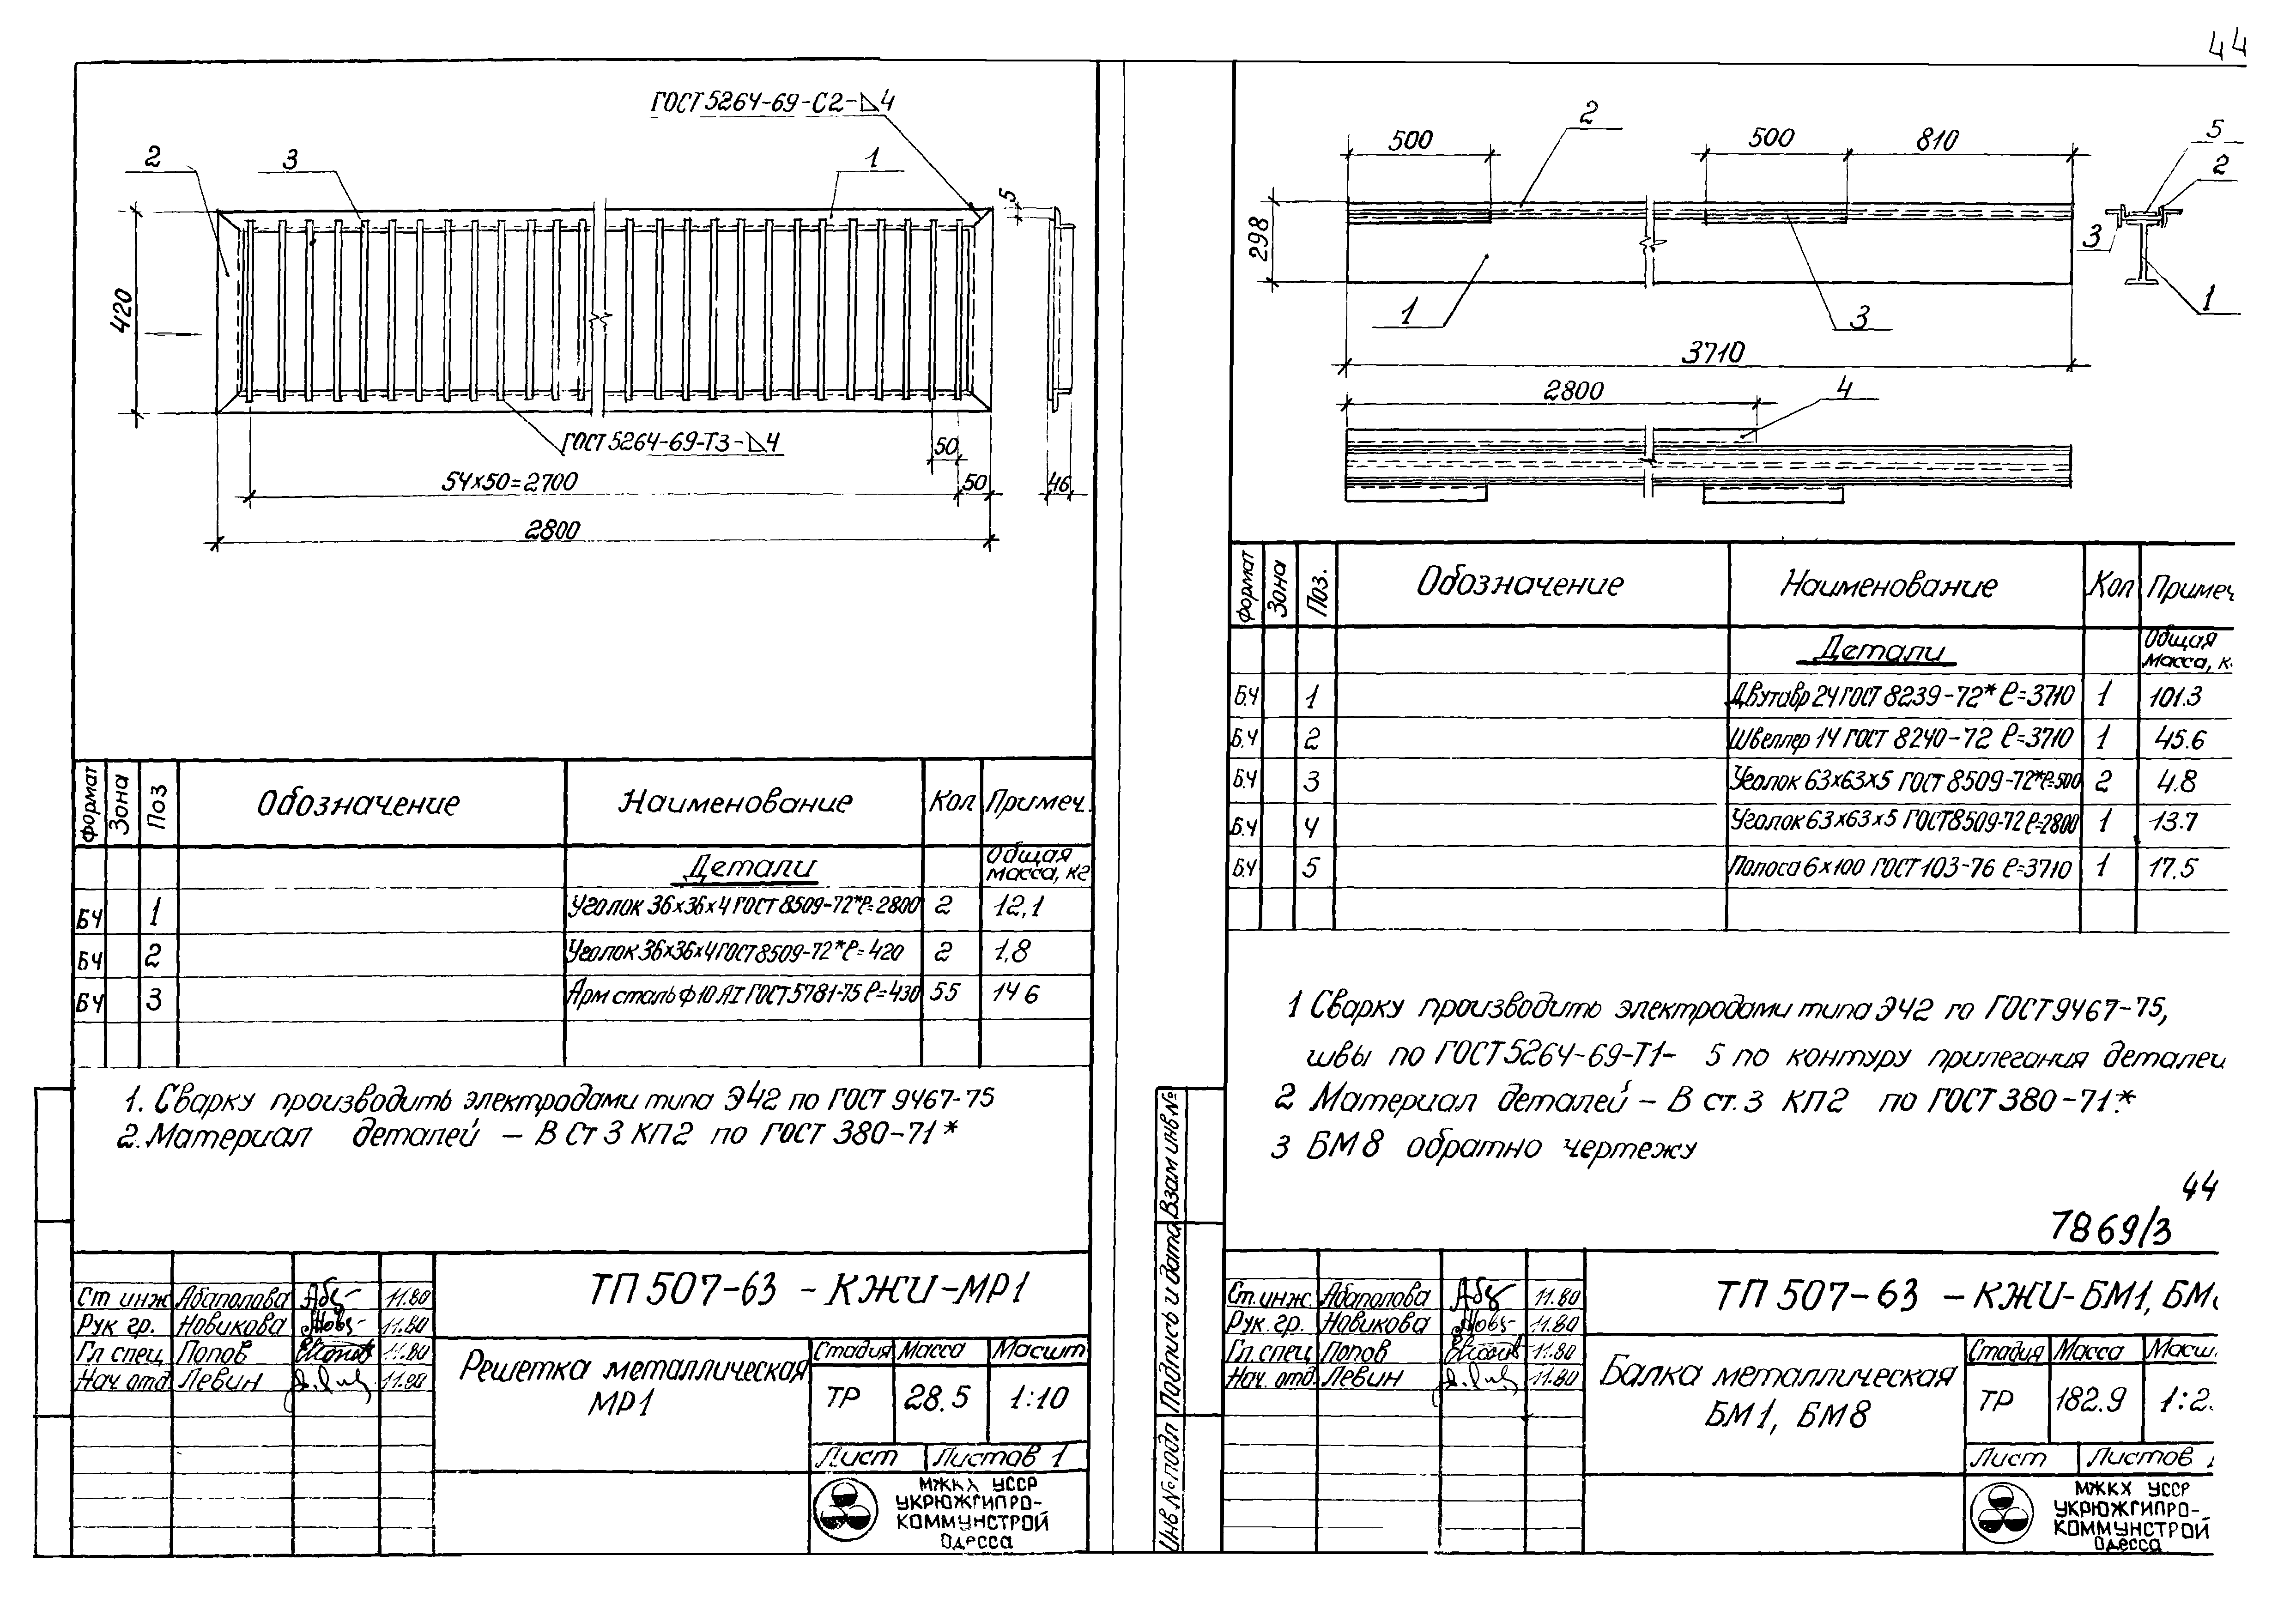 44
ГОСТ 5264-69-С2-⊿4
2
3
1
5
420
ГОСТ 5264-69-Т3-⊿4
50
54х50=2700
50
46
2800
Формат Зона Поз Обозначение Наименование Кол Примеч.
Детали Общая масса, кг
БЧ 1 Уголок 36х36х4 ГОСТ 8509-72* ℓ=2800 2 12,1
БЧ 2 Уголок 36х36х4 ГОСТ 8509-72* ℓ=420 2 1,8
БЧ 3 Арм сталь Ф10 АI ГОСТ 5781-75 ℓ=430 55 14 6
1. Сварку производить электродами типа Э42 по ГОСТ 9467-75
2. Материал деталей – В Ст 3 КП2 по ГОСТ 380-71*
ТП 507-63 - КЖИ-МР1
Ст инж Абаполова 11.80
Рук гр. Новикова 11.80
Гл спец Попов 11.80
Нач отд Левин 11.80
Решетка металлическая
МР1
Стадия Масса Масшт
ТР 28.5 1:10
Лист Листов 1
МЖКХ УССР
УКРЮЖГИПРО-
КОММУНСТРОЙ
Одесса
500
2
500
810
5
2
298
3
1
1
3
3710
2800
4
Формат Зона Поз. Обозначение Наименование Кол Примеч
Детали Общая масса, к
Б.Ч 1 Двутавр 24 ГОСТ 8239-72* ℓ=3710 1 101.3
Б.Ч 2 Швеллер 14 ГОСТ 8240-72 ℓ=3710 1 45.6
Б.Ч 3 Уголок 63х63х5 ГОСТ 8509-72* ℓ=500 2 4.8
Б.Ч 4 Уголок 63х63х5 ГОСТ 8509-72 ℓ=2800 1 13.7
Б.Ч 5 Полоса 6х100 ГОСТ 103-76 ℓ=3710 1 17.5
1 Сварку производить электродами типа Э42 го ГОСТ 9467-75,
швы по ГОСТ 5264-69-Т1- 5 по контуру прилегания деталей
2 Материал деталей – В ст. 3 КП2 по ГОСТ 380-71.*
3 БМ8 обратно чертежу
44
7869/3
Взам инв №
Подпись и дата
Инв № подл
ТП 507-63 - КЖИ-БМ1, БМ
Ст. инж. Абаполова 11.80
Рук. гр. Новикова 11.80
Гл. спец Попов 11.80
Нач. отд Левин 11.80
Балка металлическая
БМ1, БМ8
Стадия Масса Масш
ТР 182.9 1:2
Лист Листов 1
МЖКХ УССР
УКРЮЖГИПРО-
КОММУНСТРОЙ
Одесса